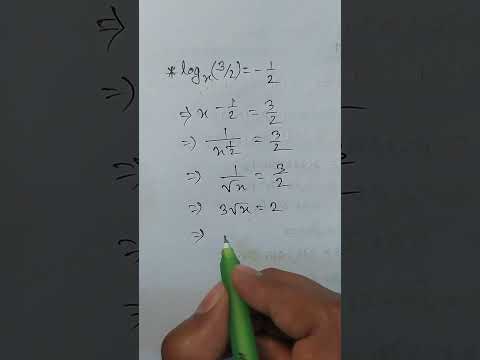 * logₓ(3/2) = -1/2
⇒ x^-1/2 = 3/2
⇒ 1/x^1/2 = 3/2
⇒ 1/√x = 3/2
⇒ 3√x = 2
⇒